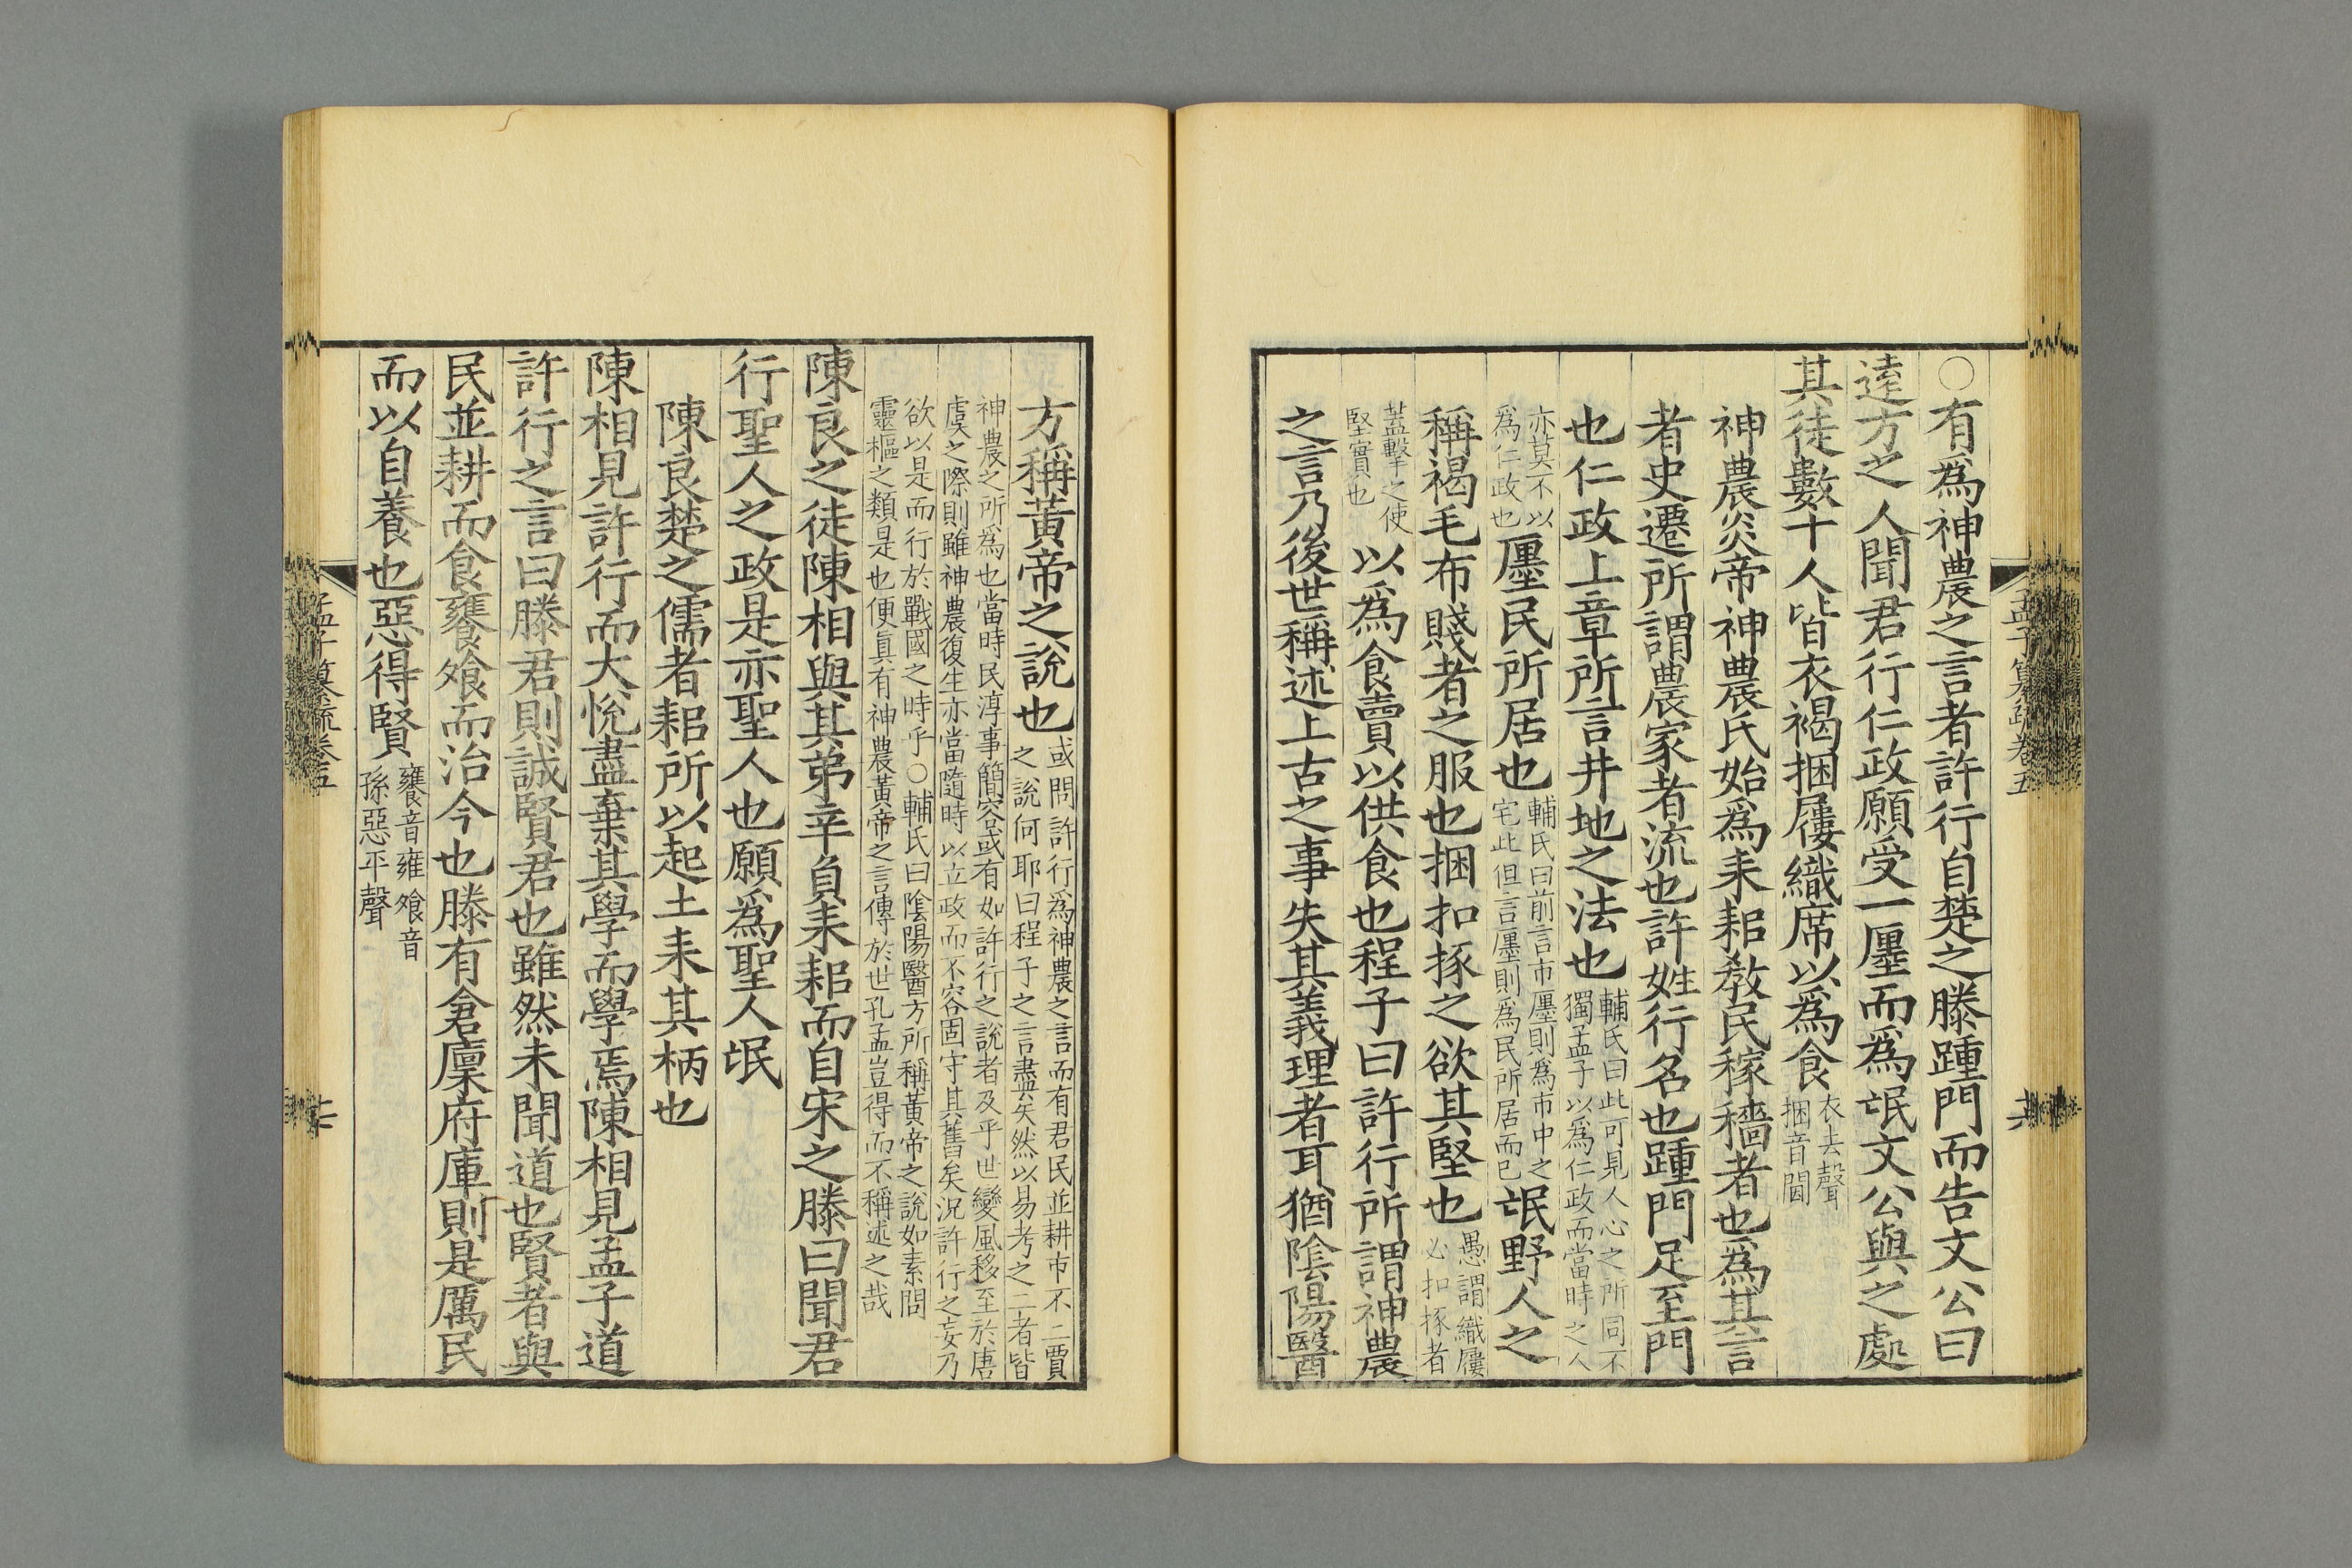 ○有爲神農之言者許行自楚之滕踵門而告文公曰
逺方之人聞君行仁政願受一㕓而爲氓文公與之處
其徒數十人皆衣褐捆屨織席以爲食
衣去聲
捆音閫
神農炎帝神農氏始爲耒耜敎民稼穡者也爲其言
者史遷所謂農家者流也許姓行名也踵門足至門
也仁政上章所言井地之法也
輔氏曰此可見人心之所同不
獨孟子以爲仁政而當時之人
亦莫不以
爲仁政也
㕓民所居也
輔氏曰前言市㕓則爲市中之
宅此但言㕓則爲民所居而已
氓野人之
稱褐毛布賤者之服也捆扣㧻之欲其堅也
愚謂織屨
必扣㧻者
蓋擊之使
堅實也
以爲食賣以供食也程子曰許行所謂神農
之言乃後世稱述上古之事失其義理者耳猶陰陽醫
孟子纂疏卷五
方稱黃帝之說也
或問許行爲神農之言而有君民並耕市不二賈
之說何耶曰程子之言盡矣然以易考之二者皆
神農之所爲也當時民淳事簡容或有如許行之說者及乎世變風移至於唐
虞之際則雖神農復生亦當隨時以立政而不容固守其舊矣況許行之妄乃
欲以是而行於戰國之時乎○輔氏曰陰陽醫方所稱黃帝之說如素問
靈樞之類是也便眞有神農黃帝之言傳於世孔孟豈得而不稱述之哉
陳良之徒陳相與其弟辛負耒耜而自宋之滕曰聞君
行聖人之政是亦聖人也願爲聖人氓
陳良楚之儒者耜所以起土耒其柄也
陳相見許行而大悅盡棄其學而學焉陳相見孟子道
許行之言曰滕君則誠賢君也雖然未聞道也賢者與
民並耕而食饔飧而治今也滕有倉廩府庫則是厲民
而以自養也惡得賢
饔音雍飧音
孫惡平聲
孟子纂疏卷五